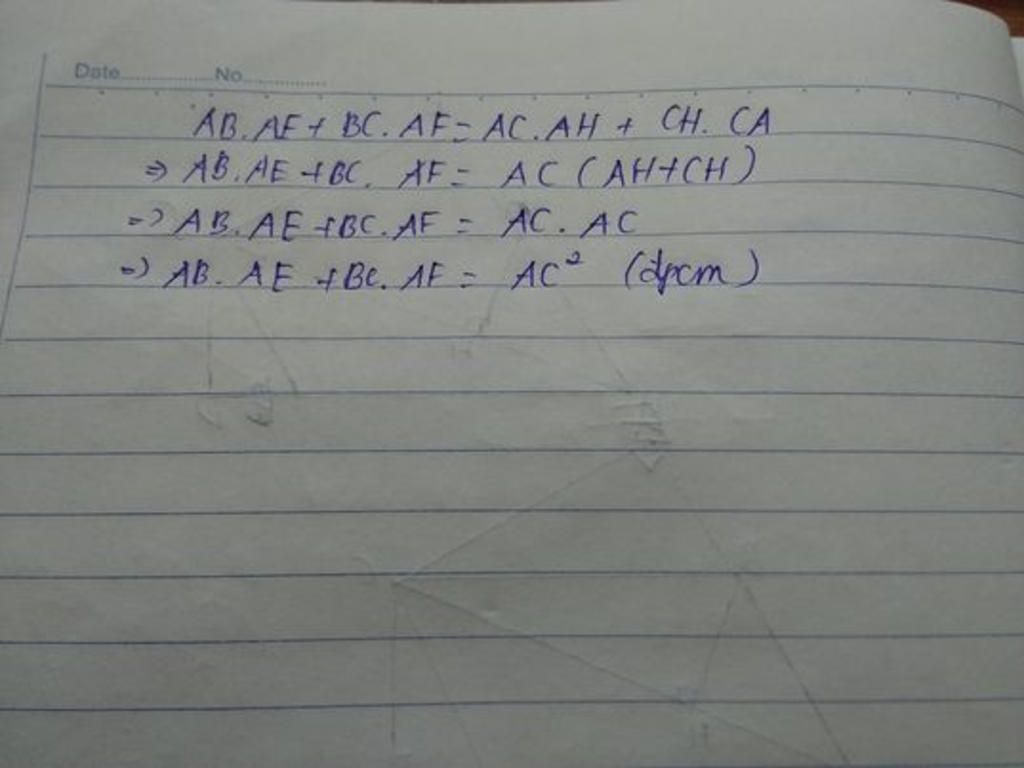 Date............... No...............
AB.AE + BC.AF = AC.AH + CH.CA
=> AB.AE + BC. AF = AC (AH+CH)
=> AB.AE + BC.AF = AC.AC
=> AB.AE + BC.AF = AC² (đpcm)